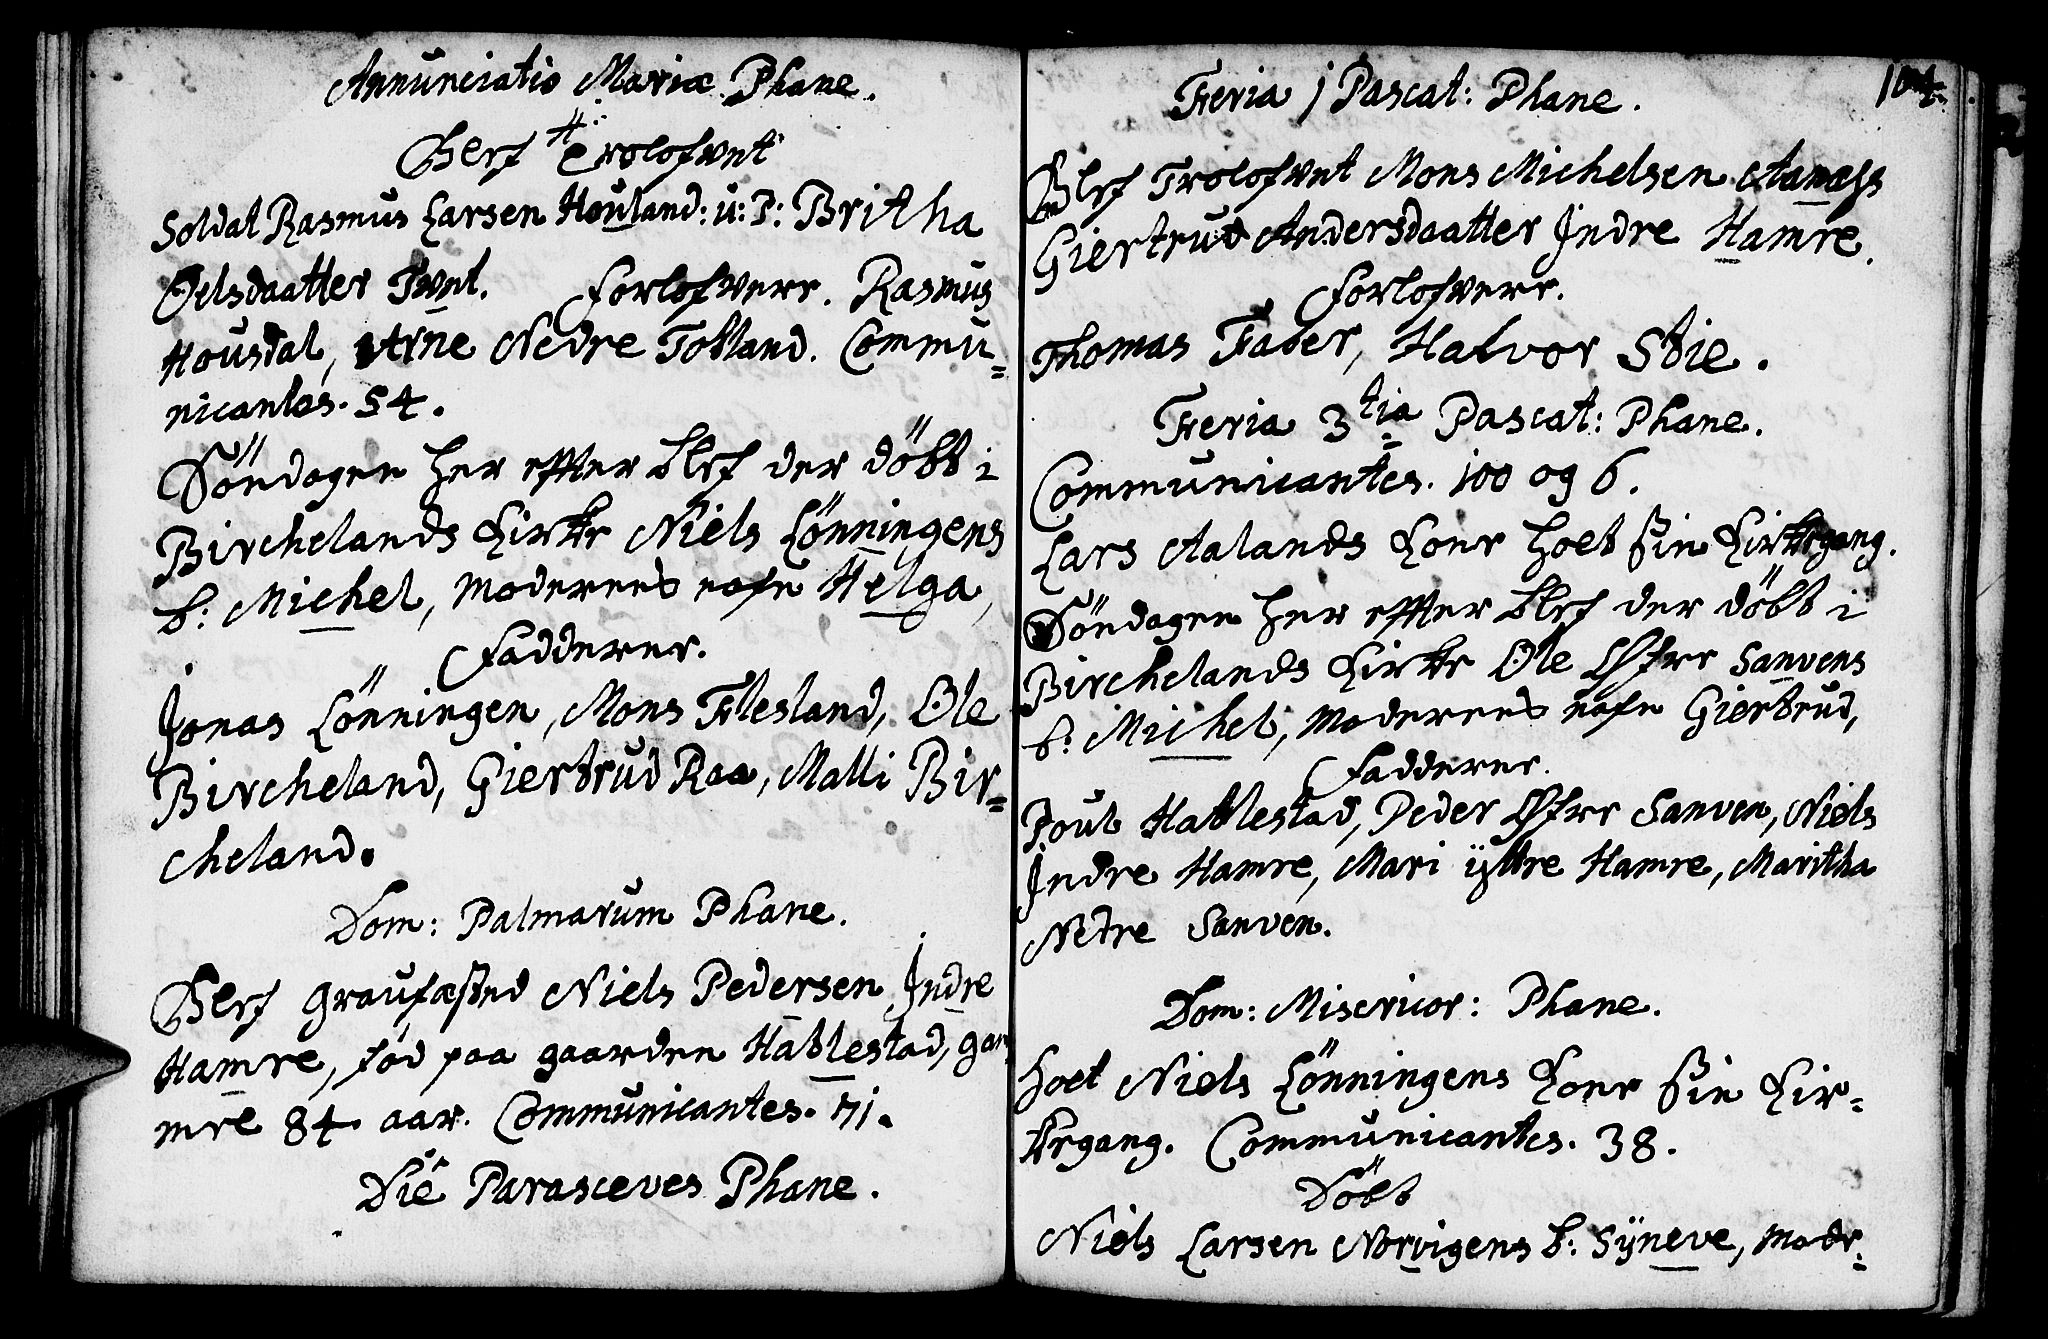 Annunciatio Mariæ Phane.
Blef Trolofvet
Soldat Rasmus Larsen Houland: u: P: Britha
Oelsdaatter Tvet. Forlofvere. Rasmus
Housdal, Arne Nedre Tolland. Commu-
nicantes. 54.
Søndagen her effter blef der döbt i
Birchelands Kirke Niels Lönningens
b: Michel, Moderens nafn Helga,
Fadderer.
Jonas Lönningen, Mons Flesland, Ole
Bircheland, Giertrud Raa, Malli Bir-
cheland.
Dom: Palmarum Phane.
Blef graufæsted Niels Pedersen Indre
Hamre, fød paa gaarden Hatlestad, ga-
mel 84 aar. Communicantes. 71.
Die Parasceves Phane.
104.
Feria 1 Pascat: Phane.
Blef Trolofvet Mons Michelsen
Giertrud Andersdaatter Indre Hamre.
Forlofvere.
Thomas Faber, Halvor Stie.
Feria 3tia Pascat: Phane.
Communicantes. 100 og 6.
Lars Aalands Kone holt sin Kirkegang.
Söndagen her effter blef der döbt i
Birchelands Kirke Ole Øfre Sanvens
b: Michel, Moderens nafn Giertrud,
Fadderer.
Poul Hatlestad, Peder Øfre Sanven, Niels
Indre Hamre, Mari ÿttre Hamre, Maritha
Nedre Sanven.
Dom: Misericor: Phane.
Holt Niels Lönningens Kone sin Kir-
kegang. Communicantes. 38.
Döbt
Niels Larsen Norvigens b: Sÿneve, Mode-